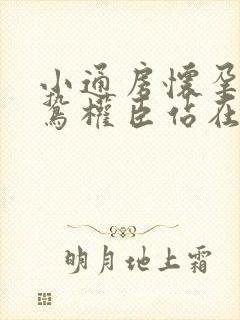 小通房怀孕
鸷权臣占在
明月地上霜